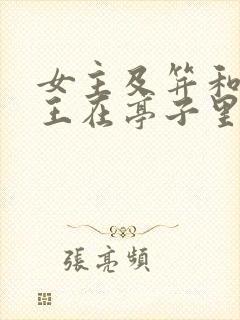 女主及笄和
王在亭子里
張亮頻